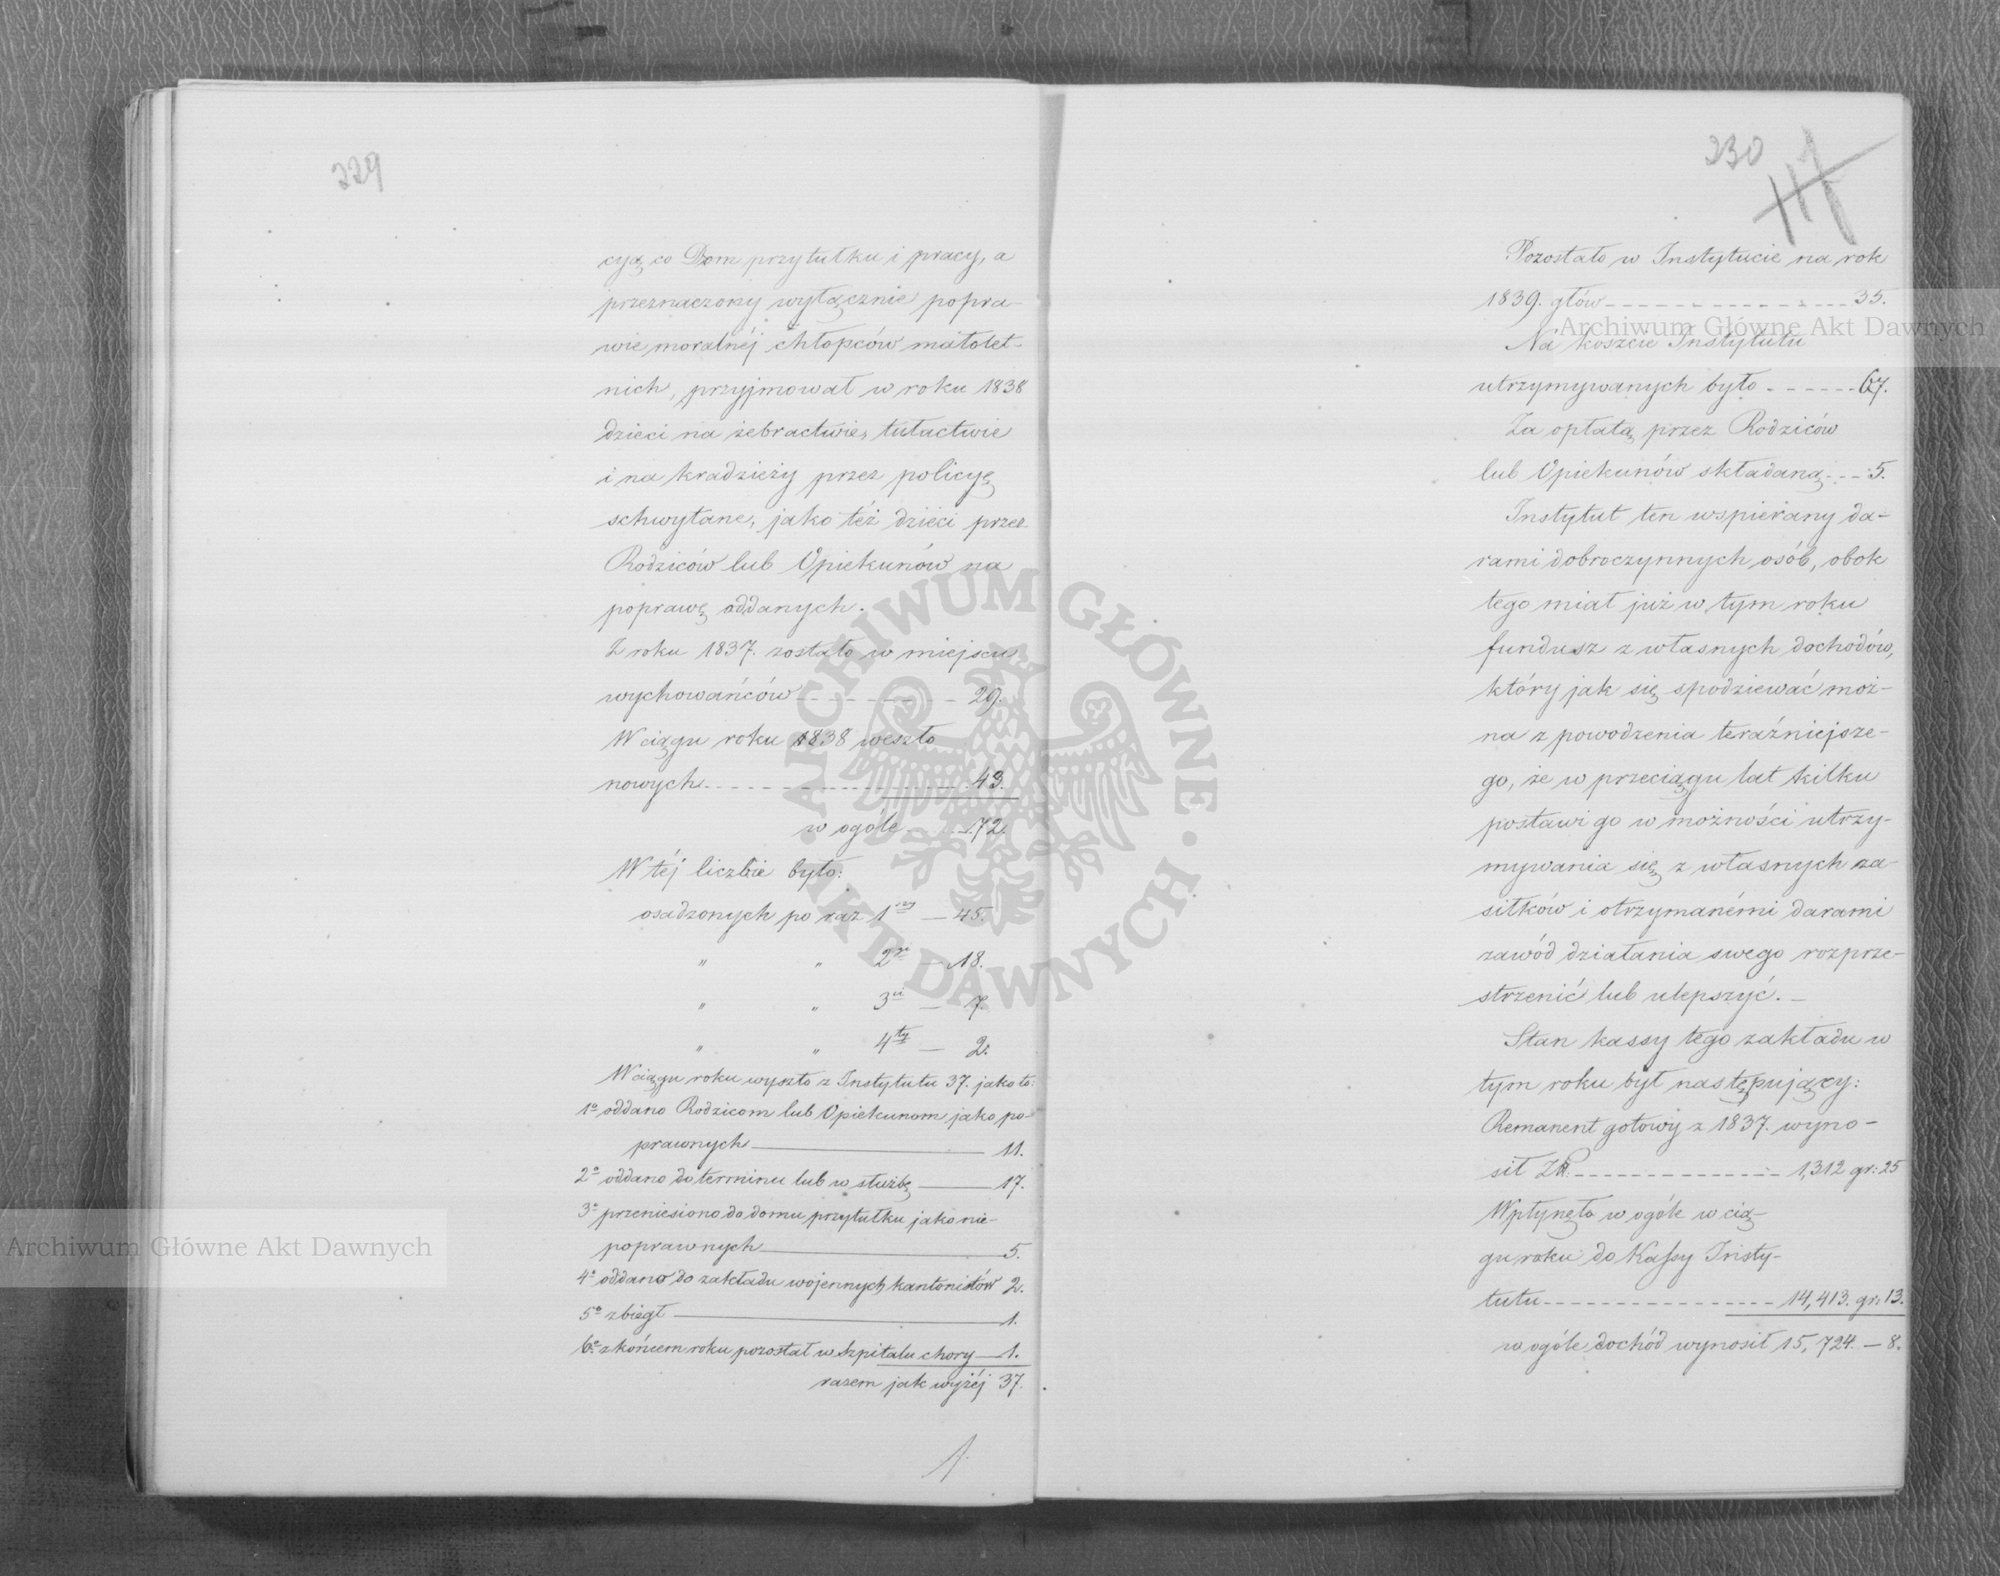 229
cyą, co Dom przytułku i pracy, a
przeznaczony wyłącznie popra-
wie moralnéj chłopców małolet-
nich, przyjmował w roku 1838
dzieci na żebractwie, tułactwie
i na kradzieży przez policyę
schwytane, jako też dzieci przez
Rodziców lub Opiekunów na
poprawę oddanych.
Z roku 1837. zostało w miejscu
wychowańców - - - - - - - - 29.
W ciągu roku 1838 weszło
nowych - - - - - - - - - - - 43.
w ogóle - - - 72.
W téj liczbie było:
osadzonych po raz 1szy — 45.
" " 2gi — 18.
" " 3ci — 7.
" " 4ty — 2.
W ciągu roku wyszło z Instytutu 37. jako to:
1o oddano Rodzicom lub Opiekunom jako po-
prawnych — 11.
2o oddano do terminu lub w służbę — 17.
3o przeniesiono do domu przytułku jako nie-
poprawnych — 5.
4o oddano do zakładu wojennych kantonistów 2.
5o zbiegł — 1.
6o z końcem roku pozostał w Szpitalu chory — 1.
razem jak wyżéj 37.
230
117
Pozostało w Instytucie na rok
1839. głów - - - - - - - - - - - 35.
Na koszcie Instytutu
utrzymywanych było - - - - - - 67.
Za opłatą przez Rodziców
lub Opiekunów składaną - - - 5.
Instytut ten wspierany da-
rami dobroczynnych osób, obok
tego miał już w tym roku
fundusz z własnych dochodów,
który jak się spodziewać moż-
na z powodzenia teraźniejsze-
go, że w przeciągu lat kilku
postawi go w możności utrzy-
mywania się z własnych za-
siłków i otrzymanémi darami
zawód działania swego rozprze-
strzenić lub ulepszyć. —
Stan kassy tego zakładu w
tym roku był następujący:
Remanent gotowy z 1837. wyno-
sił Zł. - - - - - - - - - - 1,312 gr: 25
Wpłynęło w ogóle w cią-
gu roku do Kassy Insty-
tutu - - - - - - - - - - - 14,413. gr: 13.
w ogóle dochód wynosił 15,724. — 8.
Archiwum Główne Akt Dawnych
Archiwum Główne Akt Dawnych
· ARCHIWUM GŁÓWNE · AKT DAWNYCH